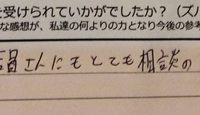 を受けられていかがでしたか?(ズバ
な感想が、私達の何よりの力となり今後の参考
員さんにもとても相談の